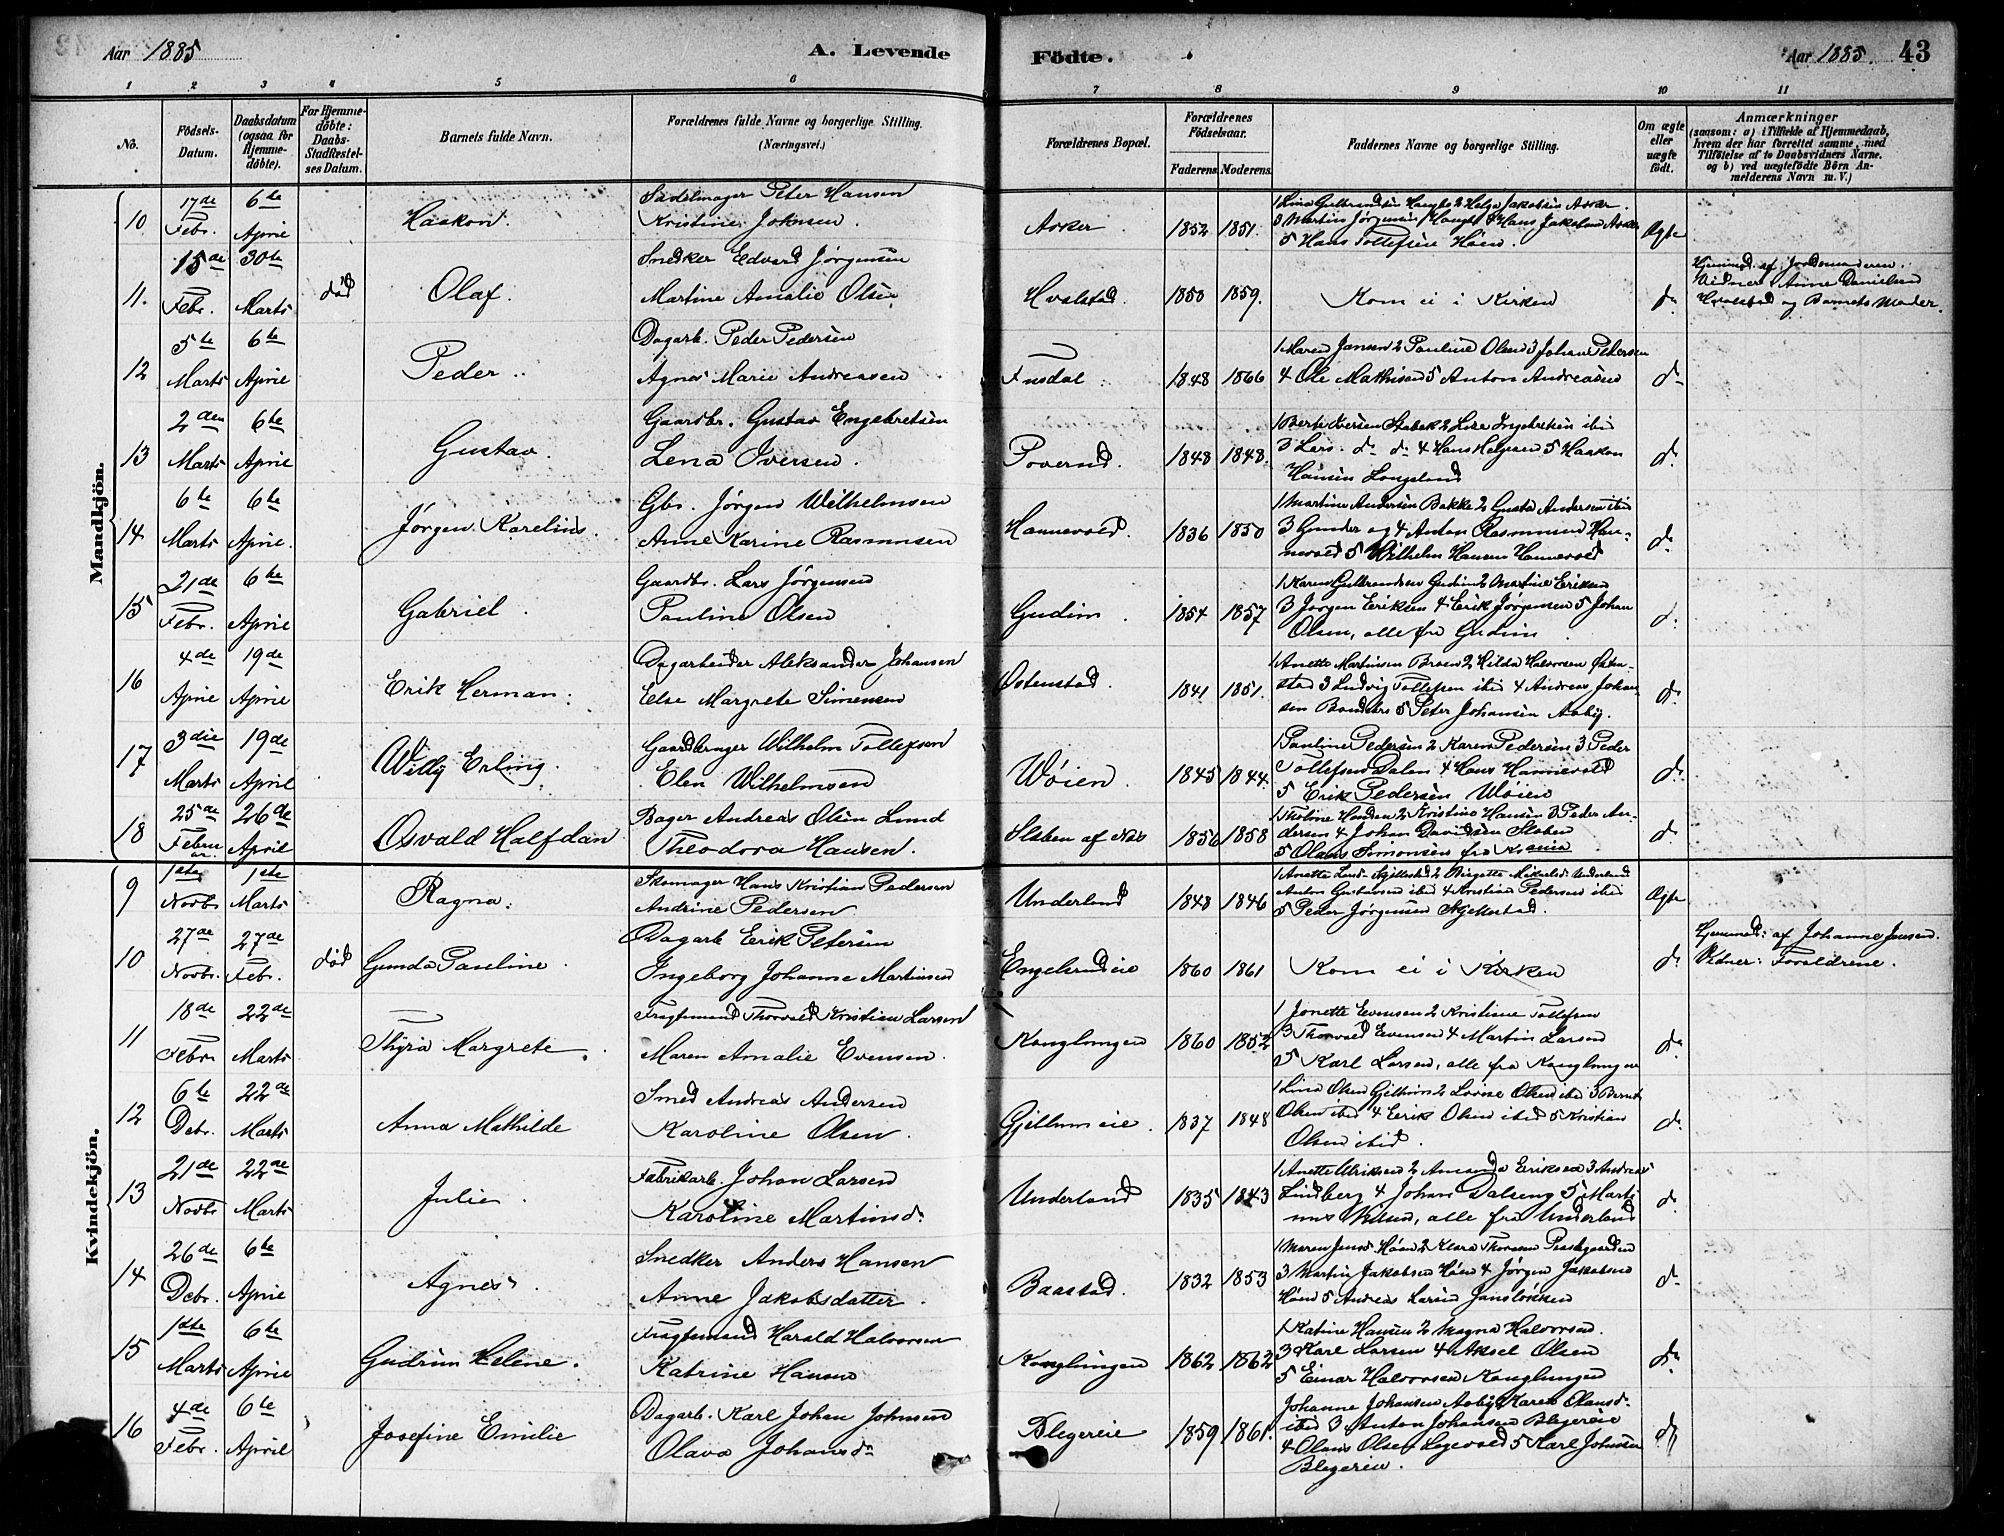 Aar 1885
A. Levende
Födte.
Aar 1885. 43
1 2 3 4 5 6 7 8 9 10 11
No.
Födsels-Datum.
Daabsdatum (ogsaa for Hjemme-döbte).
For Hjemme-döbte: Daabs-Stadfæstelses Datum.
Barnets fulde Navn.
Forældrenes fulde Navne og borgerlige Stilling. (Næringsvei.)
Forældrenes Bopæl.
Forældrenes Födselsaar.
Faderens. Moderens.
Faddernes Navne og borgerlige Stilling.
Om ægte eller uægte födt.
Anmærkninger
(saasom: a) i Tilfælde af Hjemmedaab, hvem der har forrettet samme, med Tilföielse af to Daabsvidners Navne, og b) ved uægtefödte Börn Anmelderens Navn m. V.)
Mandkjön.
10 17de Febr. 6te April Haakon. Sadelmager Peter Hansen Kristine Johnsen. Asker 1852 1851. Ægte
5 Hans Tollefsen Høen.
11. 15de Febr. 30te Marts død Olaf. Snedker Edvard Jørgensen Martine Amalie Olsen Hvalstad. 1850 1859. Kom ei i Kirken do
Hjemmed. af Jordemoderen. Vidner Anne Danielsen Hvalstad og Barnets Moder.
12 5te Marts 6te April Peder. Dagarb. Peder Pedersen Agnes Marie Andreasen Fusdal 1848 1866
1 Maren Jansen 2 Pauline Olsen 3 Johan Petersen
4 Ole Mathisen 5 Anton Andreasen do
13 2den Marts 6te April Gustav. Gaardbr. Gustav Engebretsen Lena Iversen. Poverud. 1848 1848.
3 Lars do do 4 Hans Helgesen 5 Haakon
Hansen Langeland do
14 6te Marts 6te April. Jørgen Karelius. Gbr. Jørgen Wilhelmsen Anne Karine Rasmussen Hannevold. 1836 1850
1 Martine Andersen Bakke 2 Gusta Andersen ibid
3 Gunder og 4 Anton Rasmussen Han-
nevold 5 Wilhelm Hansen Hannevold do
15 21de Febr. 6te April Gabriel. Gaardbr. Lars Jørgensen Pauline Olsen Gudim. 1854 1857
1 Karen Gulbrandsen Gudim 2 Martine Eriksen
3 Jørgen Eriksen 4 Erik Jørgensen 5 Johan
Olsen, alle fra Gudim do
16 4de April 19de April Erik Herman. Dagarbeider Aleksander Johansen Else Margrete Simensen Østenstad. 1841 1851.
1 Anette Martinsen Broen 2 Hilda Halvorsen Østen-
stad 3 Ludvig Tollefsen ibid 4 Andreas Johan-
sen 5 Peter Johansen Aaby. do
17 3die Marts 19de April Willy Erling. Gaardbruger Wilhelm Tollefsen Elen Wilhelmsen Wøien. 1845 1844.
1 Pauline Pedersen 2 Karen Pedersen 3 Peder
Tollefsen Dalen 4 Hans Hannevold
5 Erik Pedersen Wøien do
18 25de Februar 26de April Osvald Halfdan Bager Andreas Olsen Lund Theodora Hansen. Sleben af Næs 1856 1858
2 Kristine Hansen 3 Peder An-
dersen 4 Johan Davidsen Sleben
5 Olaus Simonsen fra Krania do
Kvindekjön.
9 1ste Novbr 1ste Marts Ragna. Skomager Hans Kristian Pedersen Andrine Pedersen Underland 1848 1846
Anton Gustavsen ibid 4 Kristian Pedersen ibid
5 Peder Jørgensen Skjellestad. Ægte
10 27de Novbr. 27de Febr. død Gunda Pauline. Dagarb Erik Petersen Ingeborg Johanne Martinsen Engelsrudeie 1860 1861 Kom ei i Kirken do
Hjemmed: af Johanne Jensen. Vidner: Forældrene.
11 18de Febr 22de Marts Thyra Margrete. Fragtemand Thorvald Kristian Larsen Maren Amalie Evensen. Konglungen 1860 1852
1 Jonette Evensen 2 Kristiane Tollefsen
3 Thorvald Evensen 4 Martin Larsen
5 Karl Larsen, alle fra Konglungen do
12 6te Debr. 22de Marts Anna Mathilde Smed Andreas Andersen Karoline Olsen. Gjellumeie. 1837 1848
1 Lina Olsen Gjellum 2 Lovise Olsen ibid 3 Bernt
Olsen ibid 4 Erik Olsen ibid 5 Kristian
Olsen ibid. do
13 21de Novbr 22de Marts Julie. Fabrikarb. Johan Larsen Karoline Martinsdr Underland 1835 1843
1 Anette Ulriksen 2 Amanda Eriksen 3 Andreas
Lindberg 4 Johan Dalseng 5 Marti-
nus Nilsen, alle fra Underland do
14 26de Debr. 6te April Agnes. Snedker Anders Hansen Anne Jakobsdatter. Baastad. 1832 1853
1 Maren Jensd. Høen 2 Klara Thoresen Præstegaarden
3 Martin Jakobsen Høen 4 Jørgen Jakobsen
Høen 5 Andreas Larsen Jansløkken do
15 1ste Marts 6te April Gudrun Helene. Fragtemand Harald Halvorsen Katrine Hansen Konglungen 1862 1862
1 Katrine Hansen 2 Magna Halvorsen.
3 Karl Larsen 4 Aksel Olsen
5 Einar Halvorsen Konglungen do
16 4de Febr. 6te April Josefine Emilie Dagarb. Karl Johan Johnsen Olava Johansdr Blegereie 1859 1861.
Johanne Johansen Aaby Karen Olausd.
ibid 3 Anton Johansen Blegereie
4 Olaus Olsen 5 Karl Johnsen
Blegereie. do